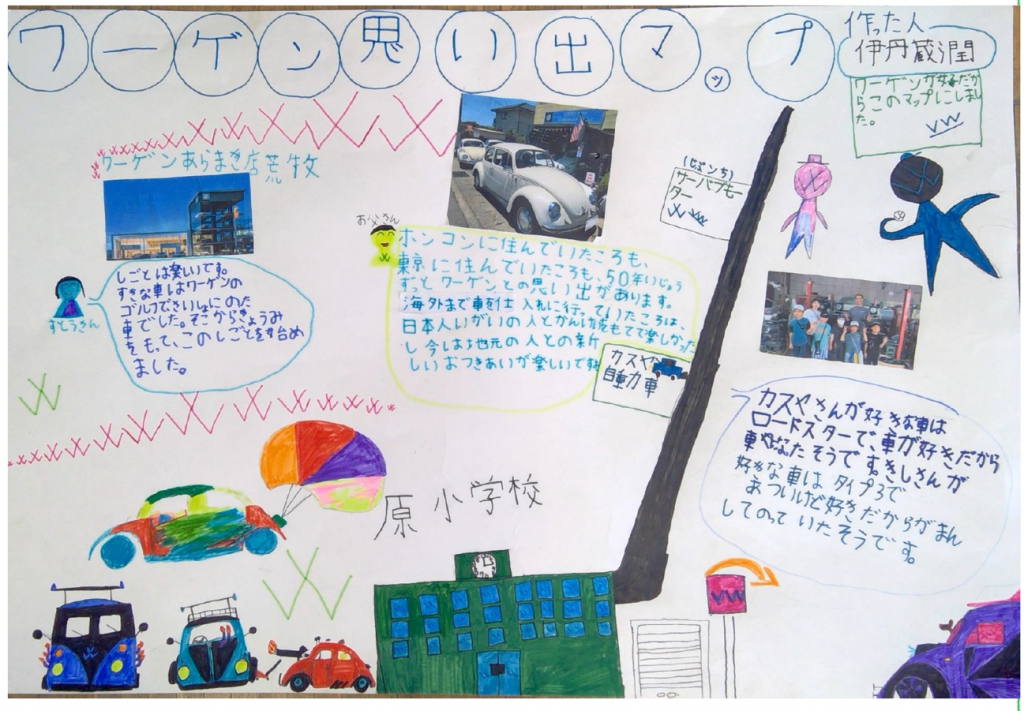 ワーゲン思い出マップ
作った人
伊丹蔵潤
ワーゲンが好きだか
らこのマップにしまし
た。
VW
ワーゲンあらまき店荒牧
しごとは楽しいです。
すきな車はワーゲンの
ゴルフでさいしょにのた
車でした。そこからきょうみ
をもって、このしごとを始め
ました。
すとうさん
お父さん
ホンコンに住んでいたころも、
東京に住んでいたころも、50年いじょう
ずっとワーゲンとの思い出があります。
海外まで車を仕入れに行っていたころは、
日本人いがいの人とかんけいをもてて楽しかった
し今は地元の人との新
しいおつきあいが楽しいです
(じぶンち)
サーバブモー
ター
VW
カスヤ
自動車
カスヤさんが好きな車は
ロードスターで、車が好きだから
車やになたそうです。きしさんが
好きな車はタイプ3で
あついけど好きだからがまん
してのっていたそうです。
原小学校
VW